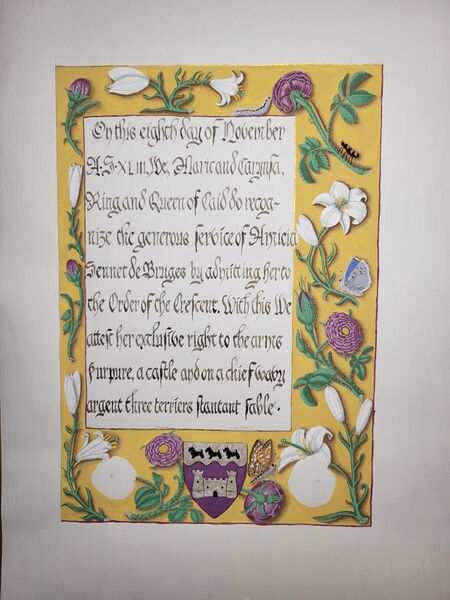 On this eighth day of November
A·S·XLIII, We, Maric and Caryssa,
King and Queen of Caid do recog-
nize the generous service of Amicia
Sennet de Bruges by admitting her to
the Order of the Crescent. With this We
attest her exclusive right to the arms
Purpure, a castle and on a chief wavy
argent three terriers stantant sable.